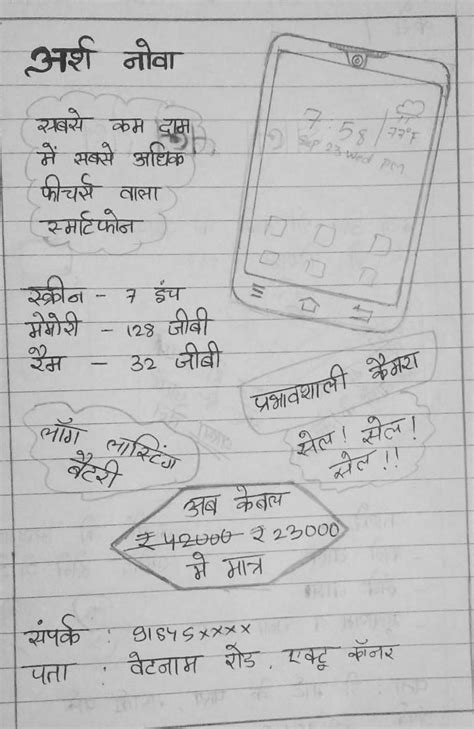 अर्श नोवा
सबसे कम दाम
में सबसे अधिक
फीचर्स वाला
स्मार्टफोन
7:58
77°F
Sep 23 Wed PM
स्क्रीन - 7 इंच
मेमोरी - 128 जीबी
रैम - 32 जीबी
प्रभावशाली कैमरा
लॉंग लास्टिंग
बैटरी
सेल! सेल!
सेल!!
अब केवल
₹42000 ₹23000
मे मात्र
संपर्क : 91645xxxx
पता : वेटनाम रोड, एक्टू कॉनर